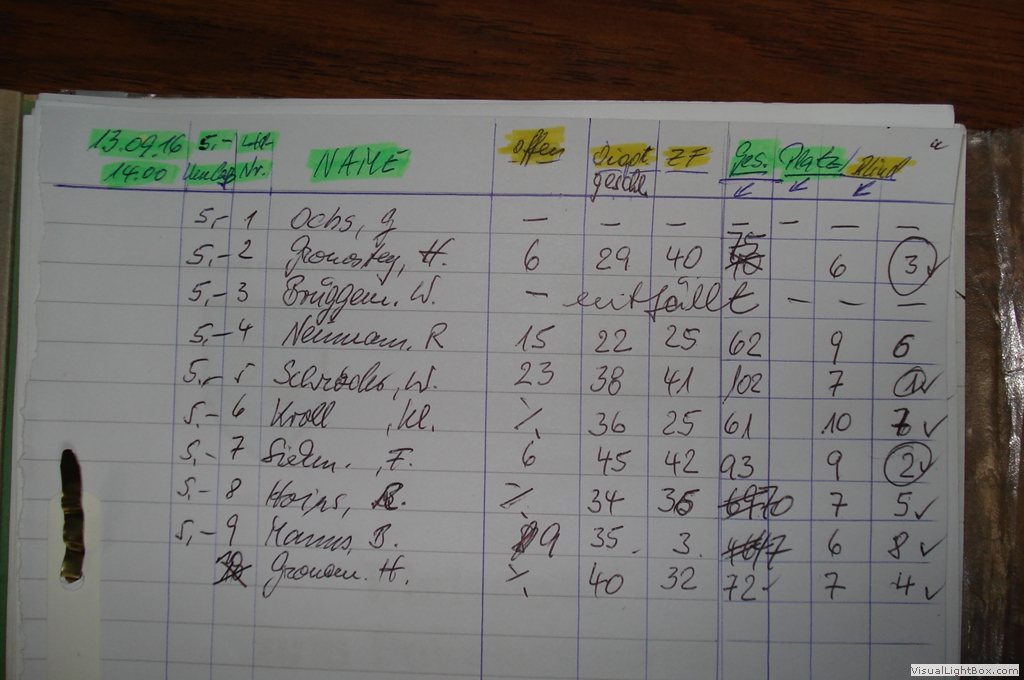 13.09.16 5,- Lfd. NAME offen ZF Ges. Platz
14.00 Umlage Nr. gesch.
5,- 1 Ochs, G — — — — — — —
5,- 2 Gronostay, H. 6 29 40 75 6 3 ✓
5,- 3 Brüggem. W. — entfällt — — —
5,- 4 Neumann. R 15 22 25 62 9 6
5,- 5 Schröder, W. 23 38 41 102 7 1 ✓
5,- 6 Kroll, Kl. ٪ 36 25 61 10 7 ✓
5,- 7 F. 6 45 42 93 9 2 ✓
5,- 8 Hoips, R. ٪ 34 36 70 7 5 ✓
5,- 9 Manns, B. 9 35. 3. 47 6 8 ✓
Gronem. H. ٪ 40 32 72 7 4 ✓
VisualLightBox.com